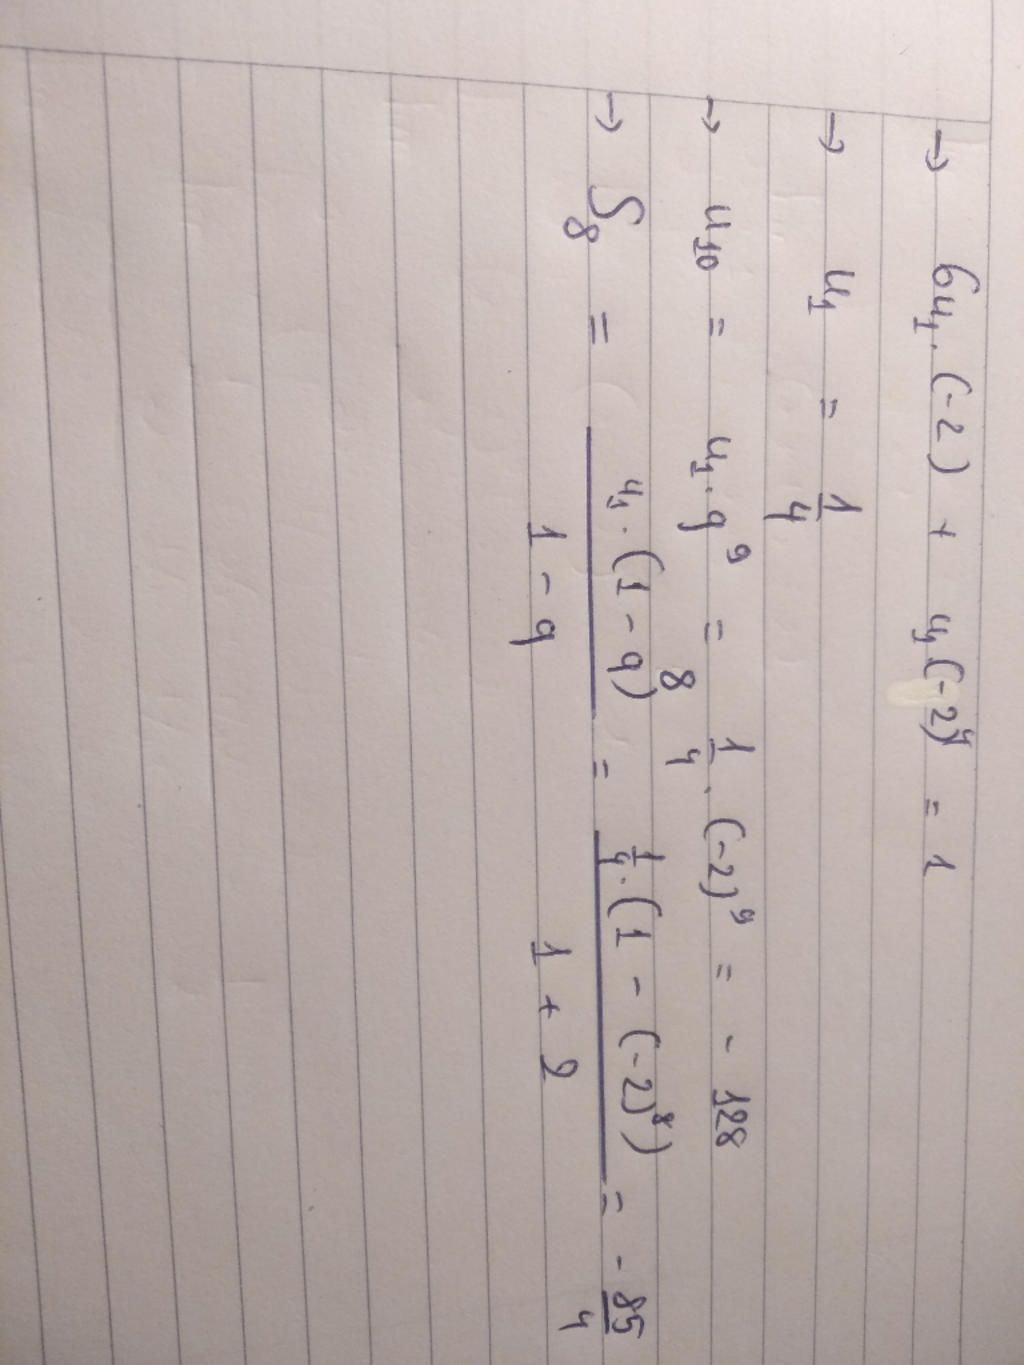 → 6u₁.(-2) + u₁(-2)⁴ = 1
→ u₁ = 1/4
→ u₁₀ = u₁.q⁹ = 1/4 . (-2)⁹ = -128
→ S₈ = u₁.(1 - q)⁸ / 1 - q = 1/4.(1 - (-2)⁸) / 1 + 2 = - 85/4